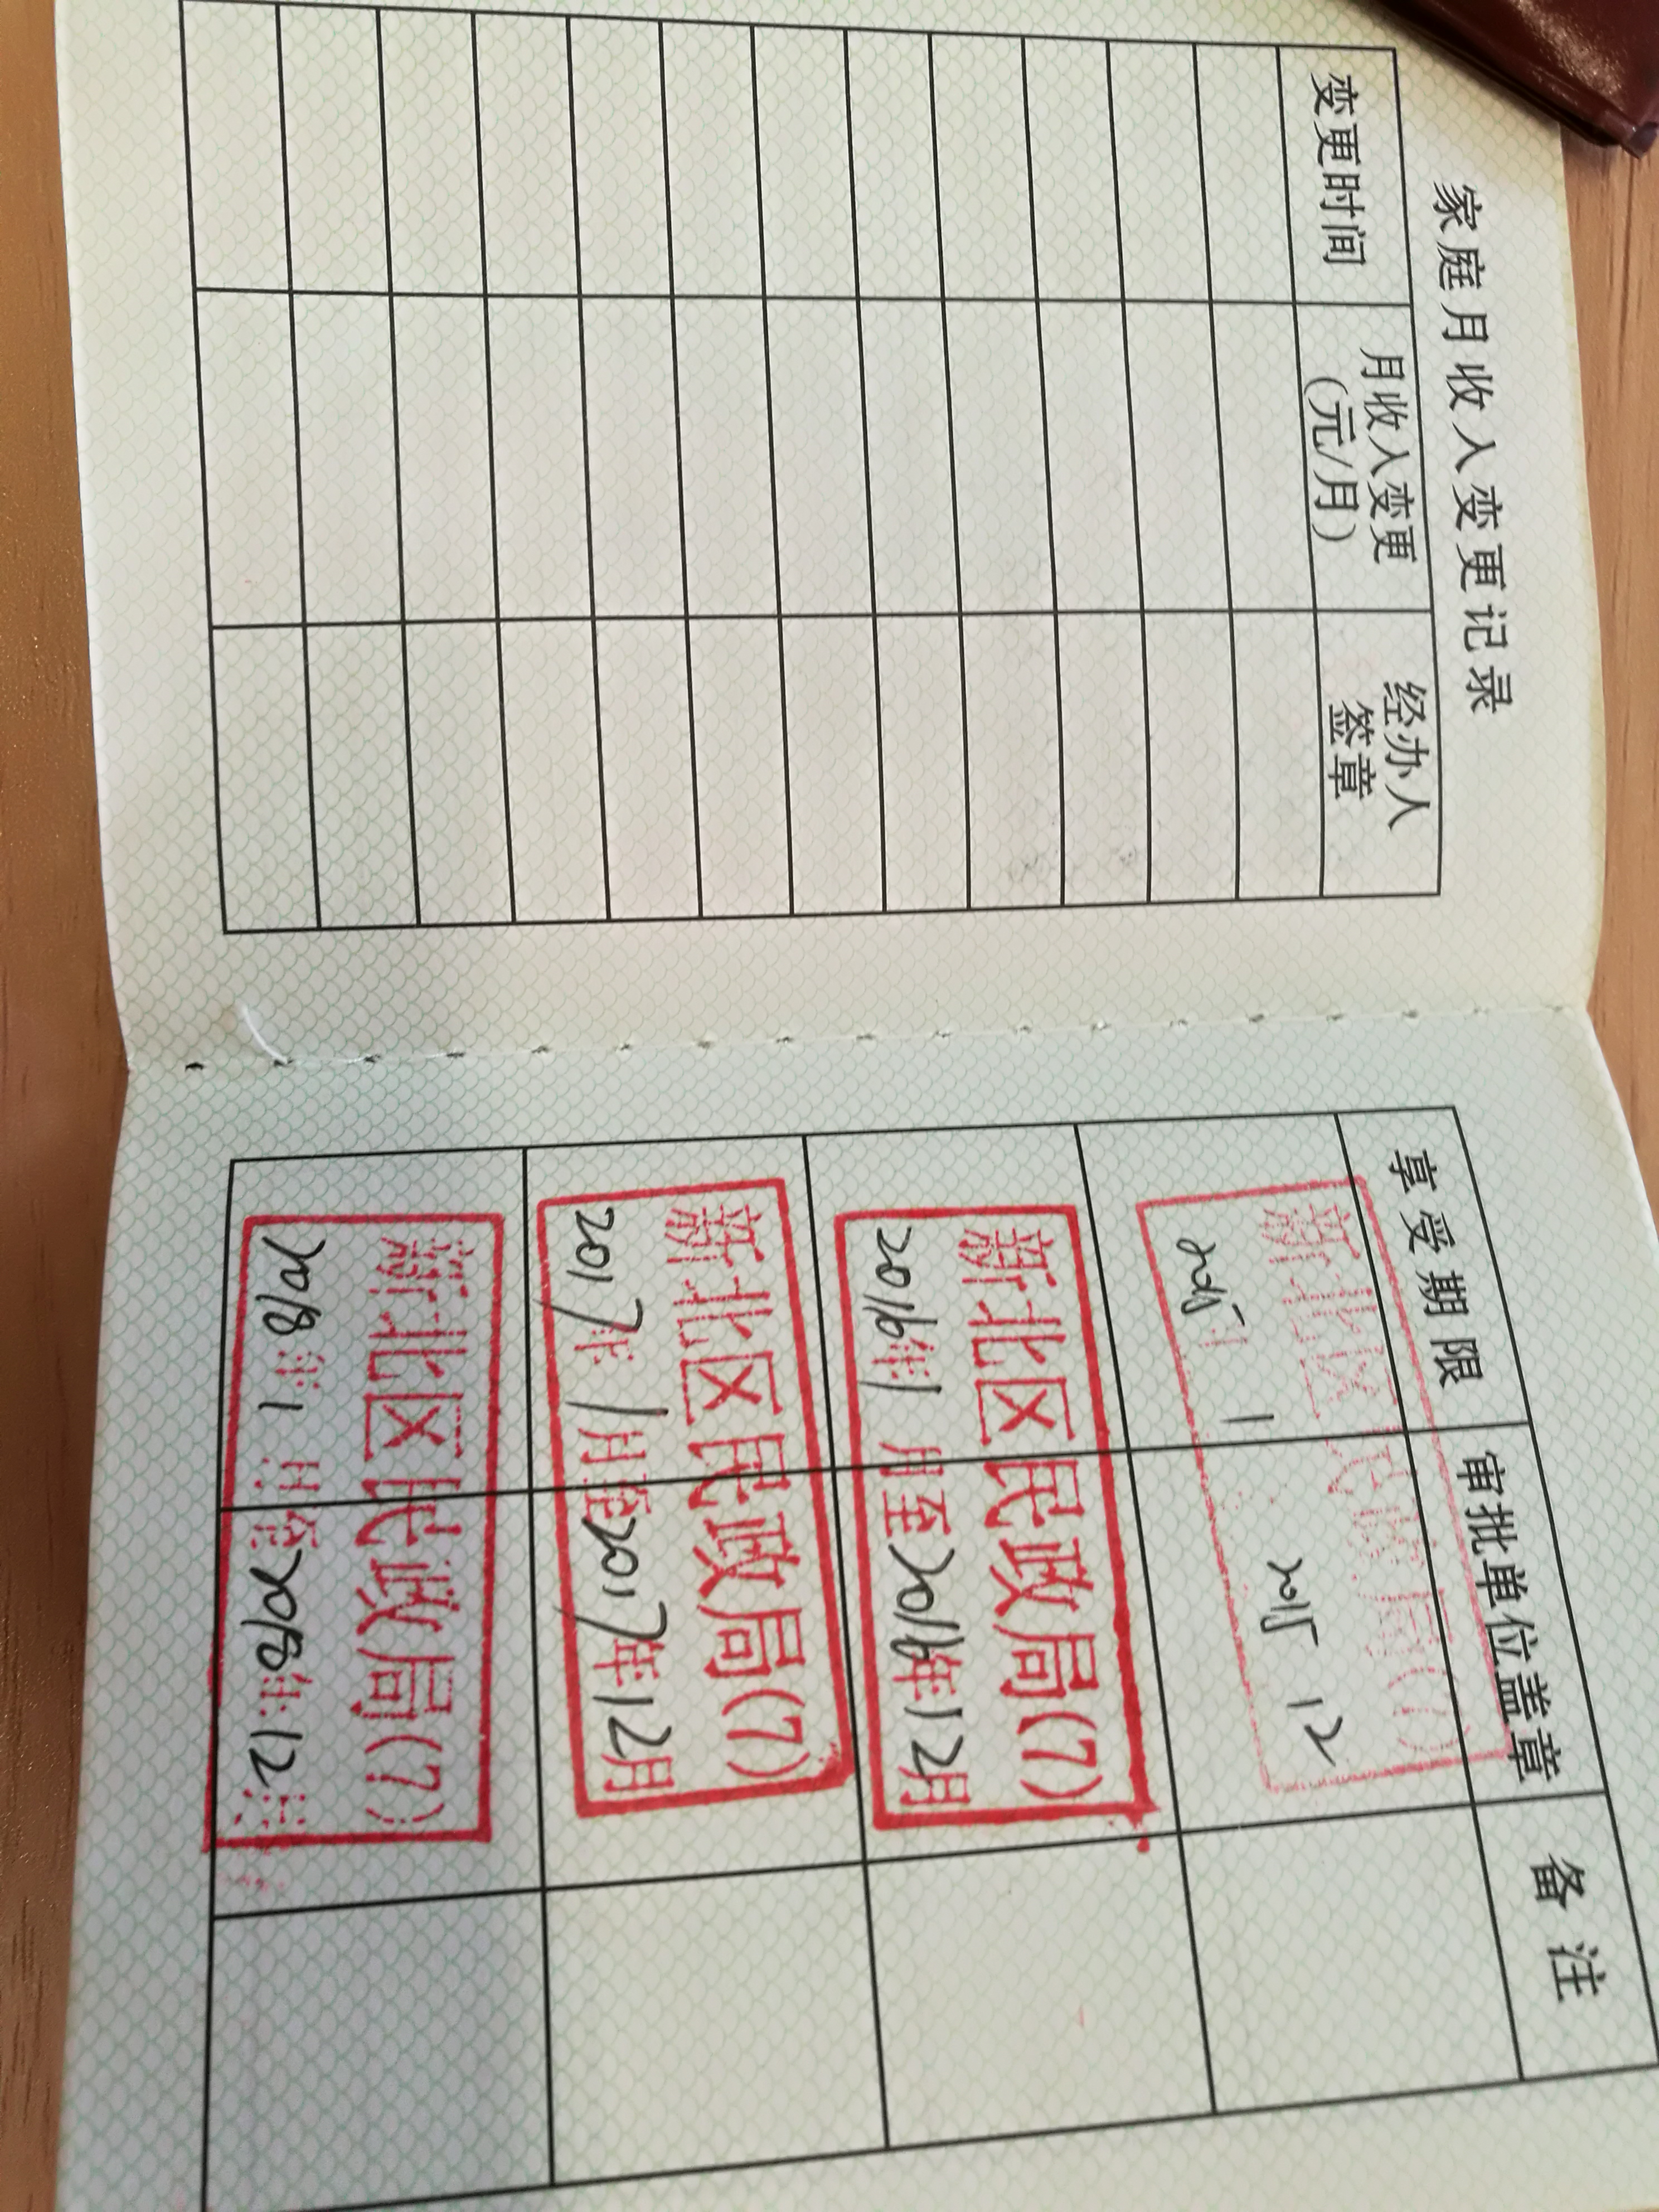 家庭月收入变更记录
变更时间 月收入变更 经办人
(元/月) 签章
享受期限 审批单位盖章 备注
新北区民政局(7)
2015 1 2015 12
新北区民政局(7)
2016年1月至2016年12月
新北区民政局(7)
2017年1月至2017年12月
新北区民政局(7)
2018年1月至2018年12月